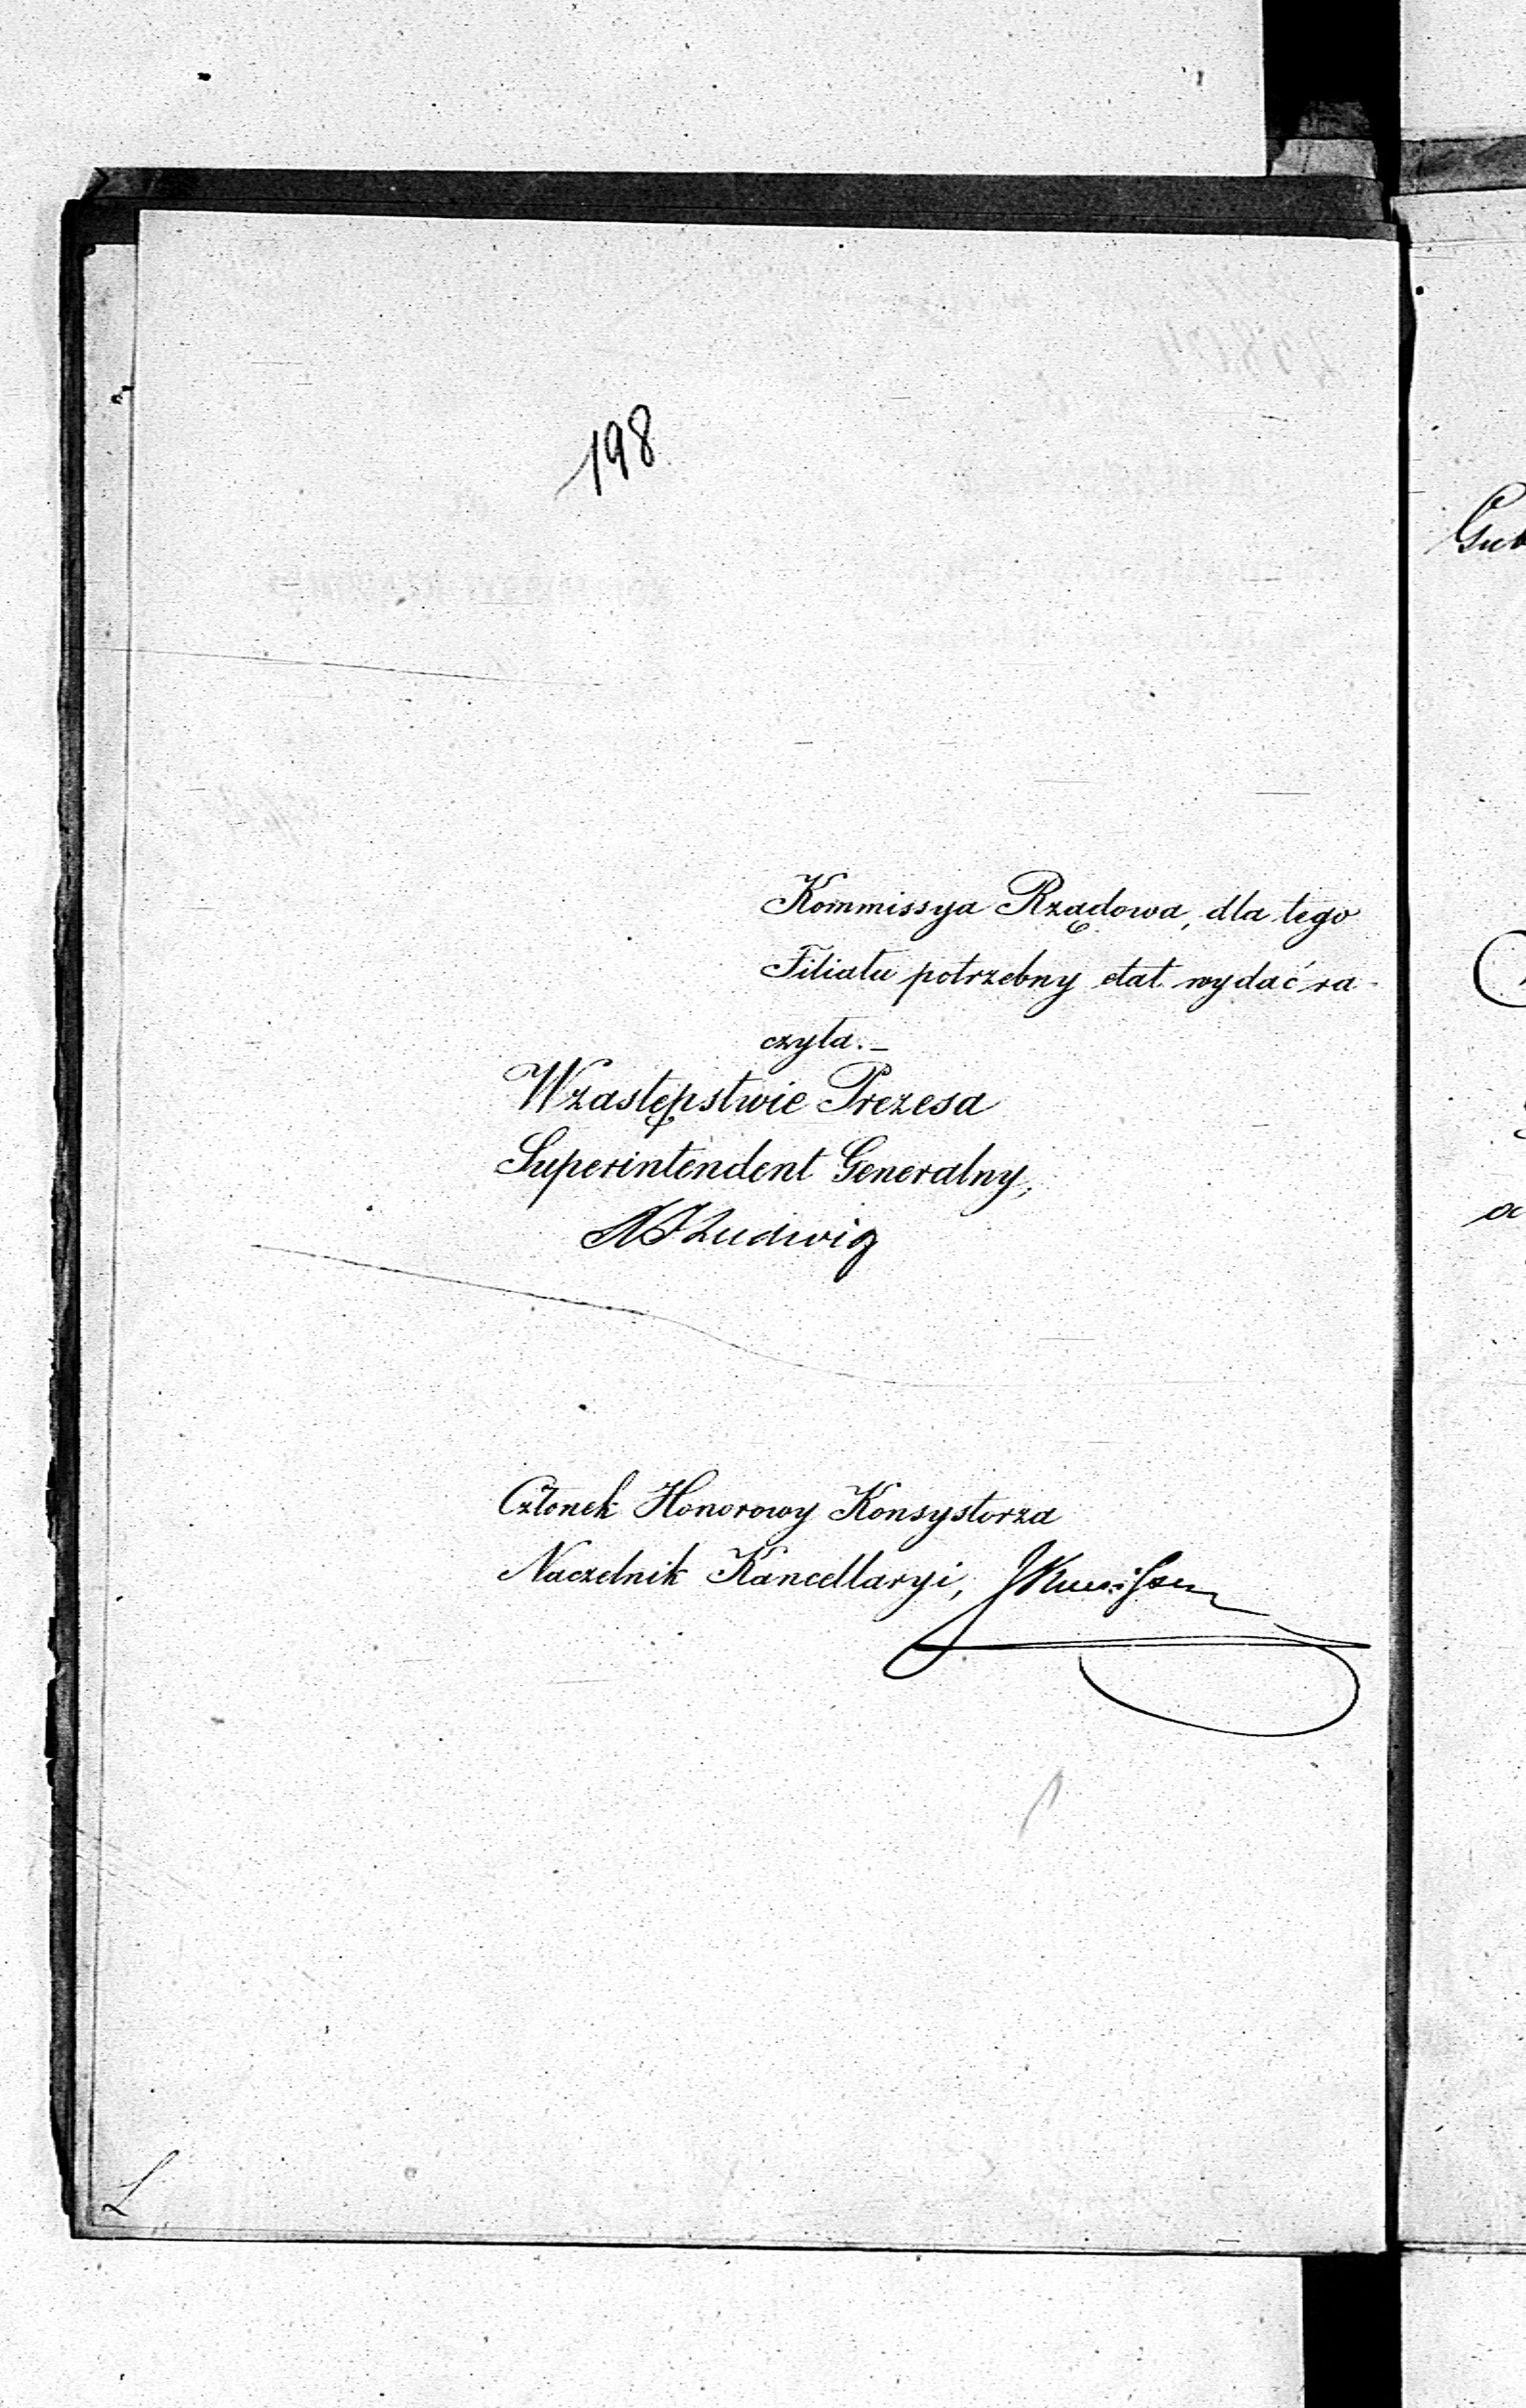 198
Kommissya Rządowa, dla tego
Filiału potrzebny etat wydać ra-
czyła. –
W zastępstwie Prezesa
Superintendent Generalny,
Ludwig
Członek Honorowy Konsystorza
Naczelnik Kancellaryi,